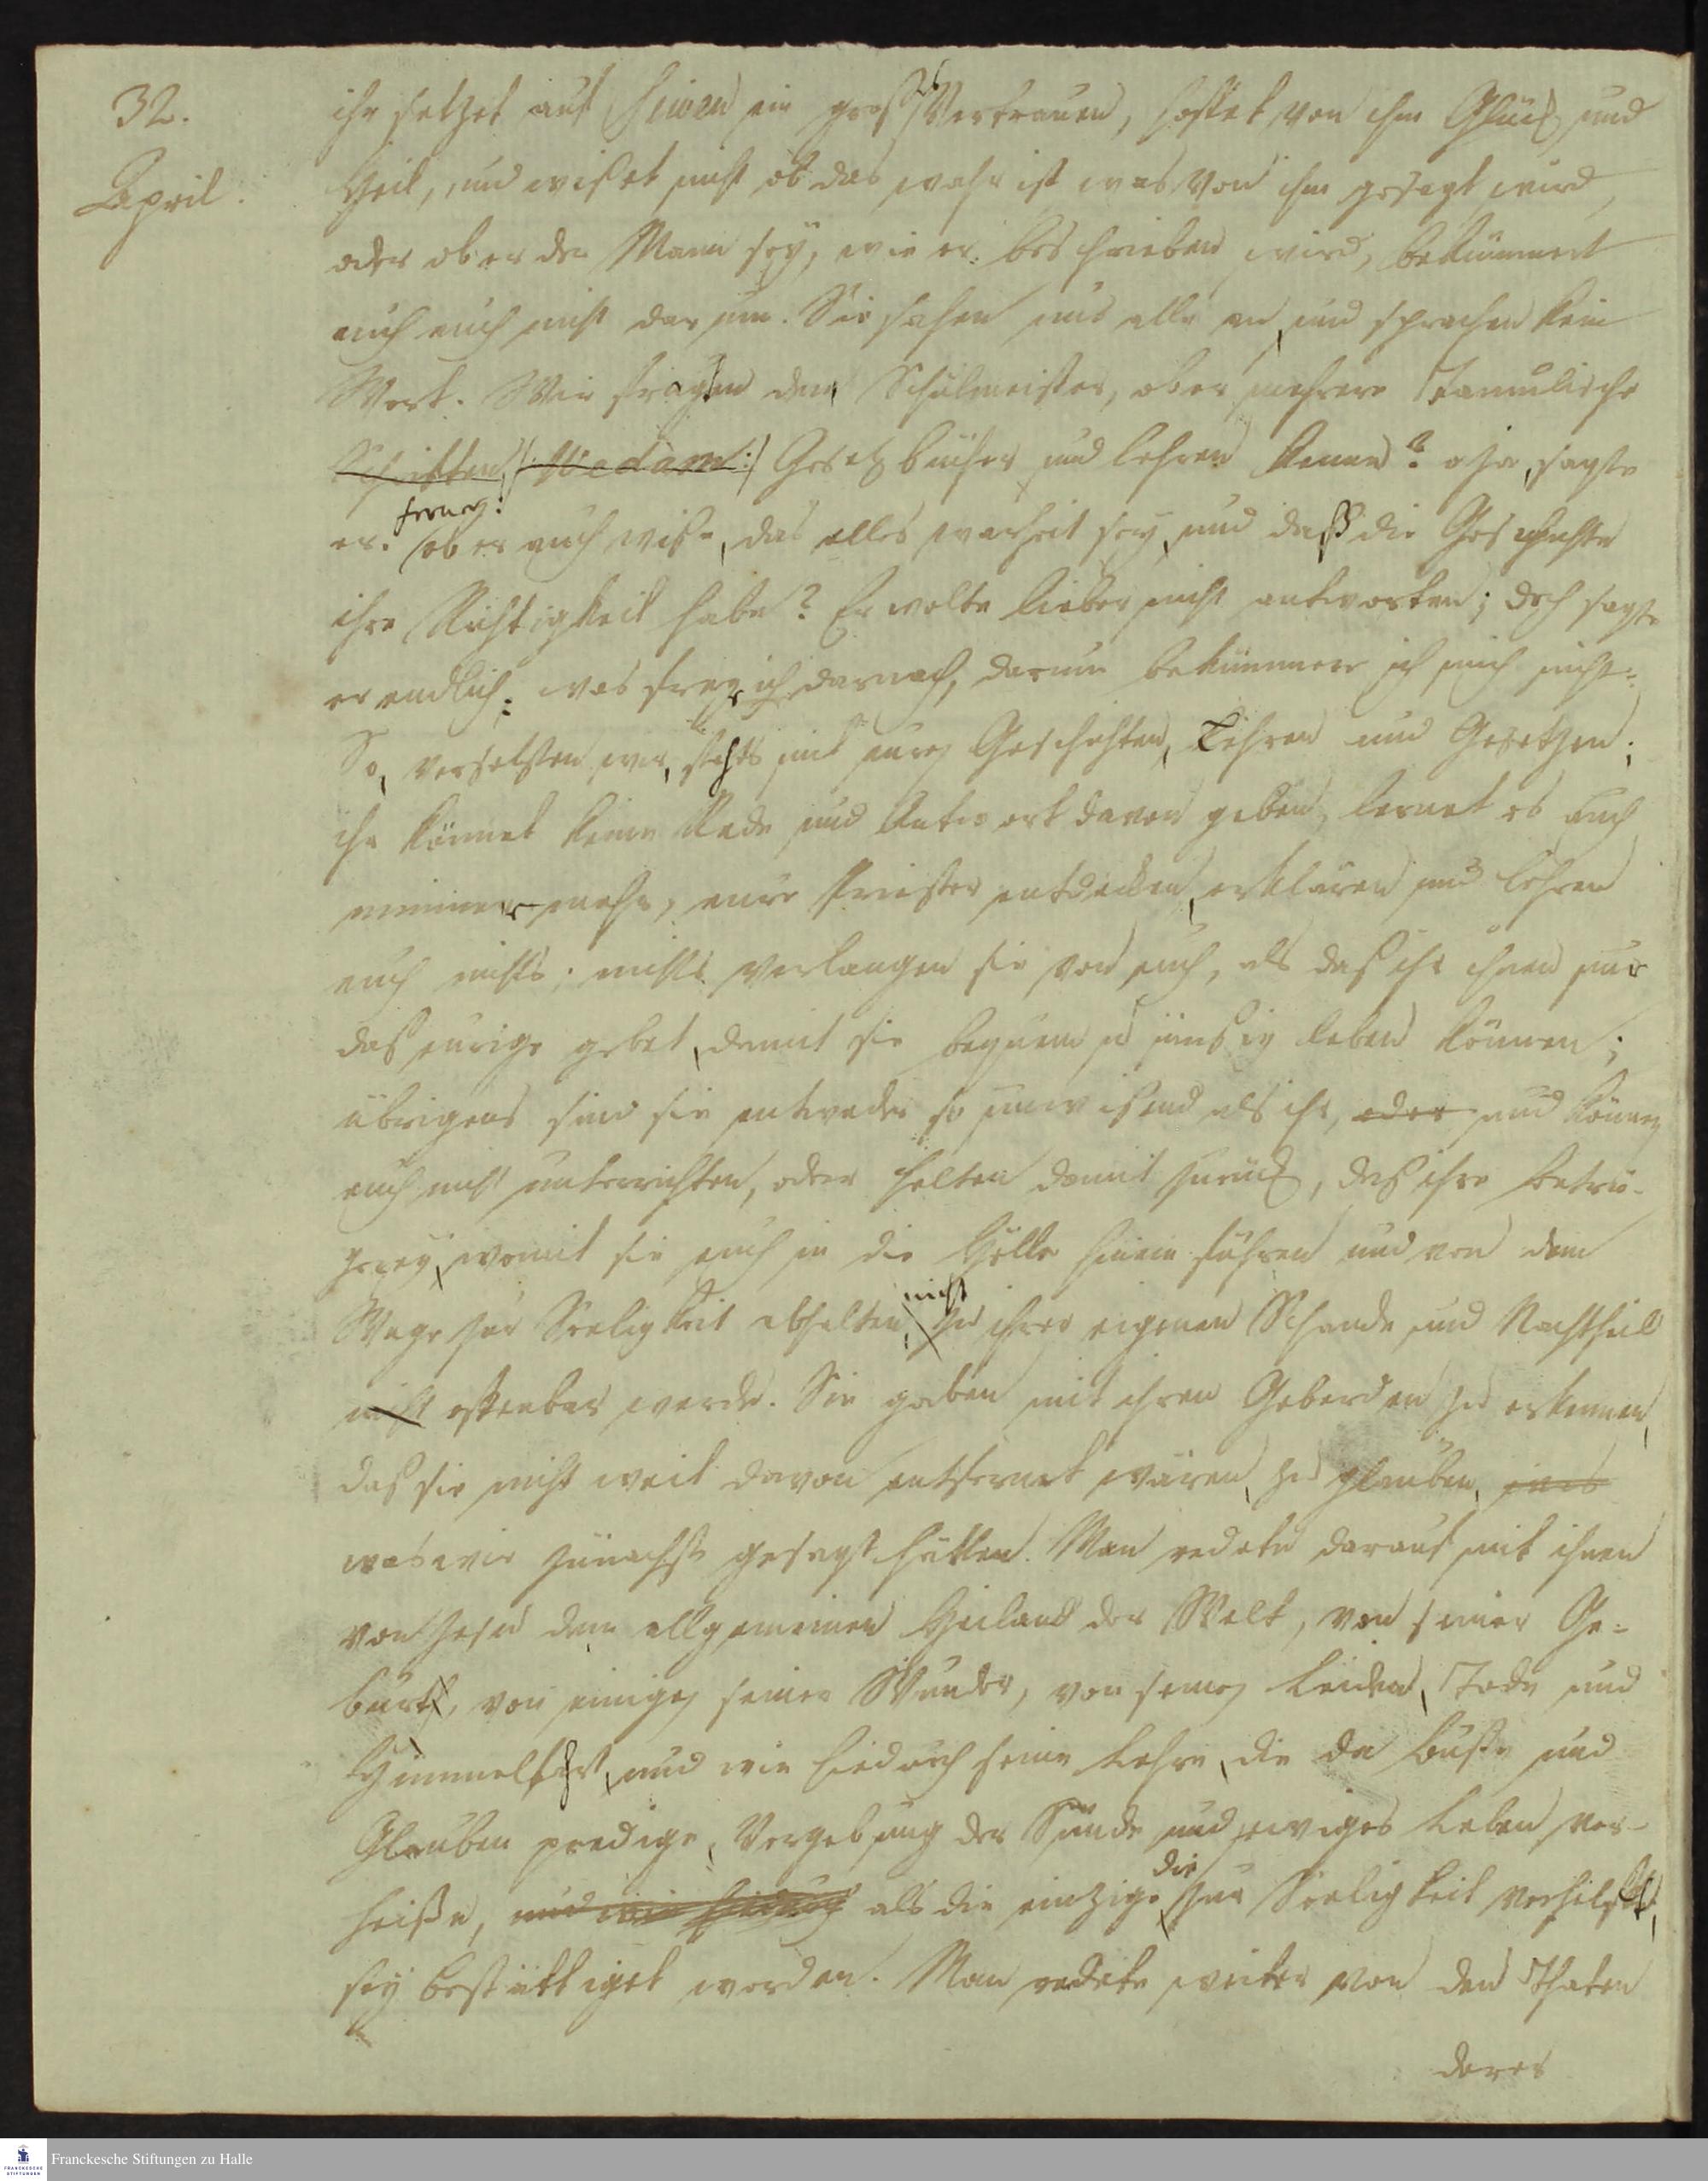 32.
April.
ihr setzet auf Siwen ein großes Vertrauen, hoffet von ihm Glück und
Heil, und wißet nicht ob das wahr ist was von ihm gesagt wird,
oder ob er der Mann sey, wie er beschrieben wird, bekümmert
euch auch nicht darum. Sie sahen uns alle an, und sprachen kein
Wort. Wir fragten den Schulmeister, ob er mehrere Tamulische
Schriften /: Wedam :/ Gesetzbücher und Lehren kenne? o ja, sagte
ferner:
er. ob er auch wiße, das alles warheit sey, und daß die Geschichte
ihre Richtigkeit habe? Er wolte lieber nicht antworten; doch sagte
er endlich: was frag ich darnach, darum bekümmere ich mich nicht.
So, versetzten wir, stehts mit euren Geschichten, Lehren und Gesetzen;
ihr könnet keine Rede und Antwort davon geben, lernet es auch
nimmermehr, eure Priester entdecken, erklären und lehren
euch nichts; nichts verlangen sie von euch, als daß ihr ihnen nur
das eurige gebet, damit sie bequem u müßig leben können;
übrigens sind sie entweder so unwißend als ihr, oder und können
euch nicht unterrichten, oder halten damit zurück, daß ihre Betrü-
gerey, womit sie euch in die Hölle hinein führen und von dem
nicht
Wege zur Seeligkeit abhalten, zu ihrer eigenen Schande und Nachtheil
nicht offenbar werde. Sie gaben mit ihren Geberden zu erkennen,
daß sie nicht weit davon entfernet wären, zu glauben,
was wir zunächst gesagt hätten. Man redete darauf mit ihnen
von Jesu dem allgemeinen Heiland der Welt, von seiner Ge-
burt, von einigen seiner Wunder, von seinem Leiden, Tode und
Himmelfahrt, und wie hiedurch seine Lehre, die da Buße und
Glauben predige, Vergebung der Sünde und ewiges Leben ver-
die
heiße, und wie hiedurch als die einzige zur Seeligkeit verhilft,
sey bestättiget worden. Man redete weiter von den Thaten
derer
Franckesche Stiftungen zu Halle
FRANCKESCHE
STIFTUNGEN